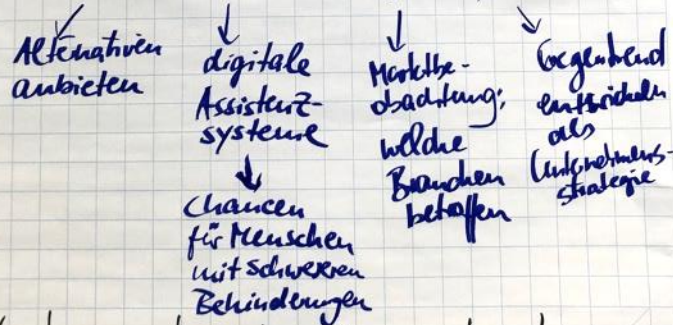 Alternativen
anbieten
digitale
Assistenz-
systeme
Chancen
für Menschen
mit schweren
Behinderungen
Marktbe-
obachtung:
welche
Branchen
betroffen
Gegentrend
entwickeln
als
Unternehmens-
strategie